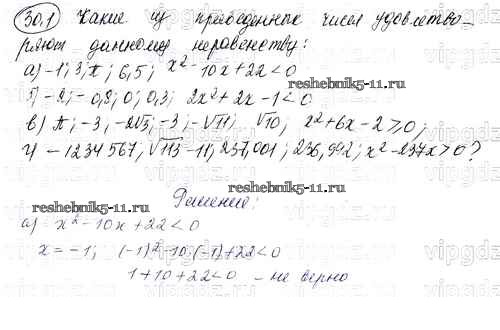 30.1 Какие из приведенных чисел удовлетво-
ряют данному неравенству:
а) -1; 3; π; 6,5; x² - 10x + 22 < 0
б) -2; -0,8; 0; 0,3; 2x² + 2x - 1 < 0
в) π; -3; -2√5; -3; -√11; √10; x² + 6x - 2 ≥ 0;
г) -1234567; √113 - 11; 237,001; 236,992; x² - 237x > 0?
reshebnik5-11.ru
Решение:
reshebnik5-11.ru
а) x² - 10x + 22 < 0
x = -1; (-1)² - 10·(-1) + 22 < 0
1 + 10 + 22 < 0 - не верно